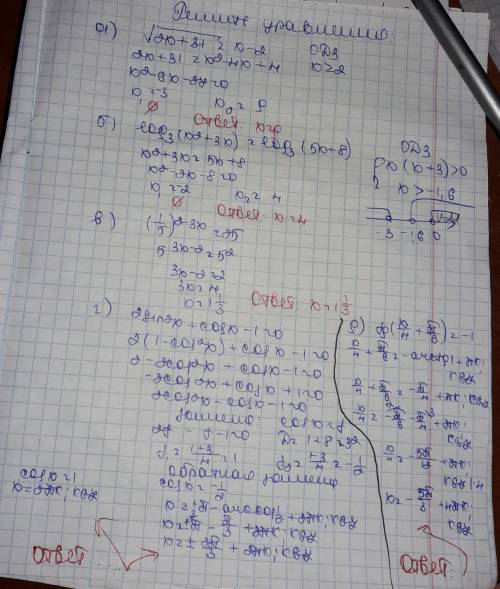 Решите уравнению:
а) √2x+31 = x-2 ОДЗ
2x+31 = x²-4x+4 x≥2
x²-6x-27=0
x₁=-3 x₂=9
∅
Ответ: x=9
б) log₃(x²+3x) = log₃(5x+8) ОДЗ
x²+3x=5x+8 { x(x+3)>0
x²-2x-8=0 x>-1,6
x₁=-2 x₂=4
∅ -3 -1,6 0
Ответ: x=4
в) (1/5)^2-3x=25
5^3x-2=5²
3x-2=2
3x=4
x=1 1/3
Ответ: x=1 1/3
г) 2sin²x+cosx-1=0
2(1-cos²x)+cosx-1=0
2-2cos²x+cosx-1=0
-2cos²x+cosx+1=0
2cos²x-cosx-1=0
замена: cosx=y
2y²-y-1=0 D=1+8=3²
y₁=(1+3)/4=1 y₂=(1-3)/4=-1/2
обратная замена
cosx=1 cosx=-1/2
x=2πk; k∈Z
x=±π-arccos1/2+2πk; k∈Z
x=±π-π/3+2πk; k∈Z
x=±2π/3+2πk; k∈Z
Ответ
д) tg(x/4+π/6)=-1
x/4+π/6=-arctg1+πk; k∈Z
x/4+π/6=-π/4+πk; k∈Z
x/4=-π/6-π/4+πk; k∈Z
x/4=-5π/12+πk; k∈Z |·4
x=-5π/3+4πk; k∈Z
Ответ